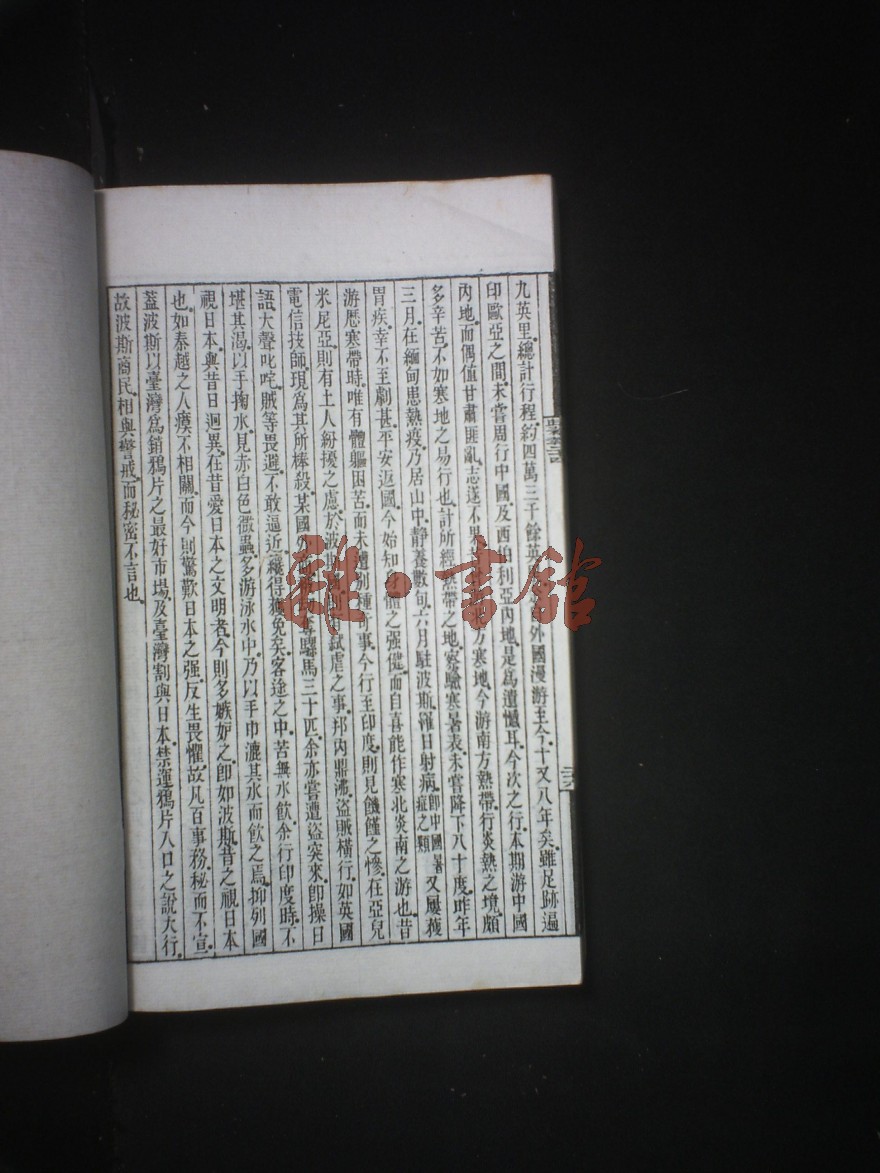 九英里。總計行程。約四萬三千餘英 外國漫游至今。十又八年矣。雖足跡遍
印歐亞之間。未嘗周行中國及西伯利亞內地。是爲遺憾耳。今次之行。本期游中國
內地。而偶值甘肅匪亂。志遂不果 方寒地。今游南方熱帶。行炎熱之境。頗
多辛苦。不如寒地之易行也。計所經熱帶之地。案驗寒暑表。未嘗降下八十度。昨年
三月。在緬甸患熱疫。乃居山中。靜養數旬。六月駐波斯。罹日射病。卽中國暑症之類 又屢獲
胃疾。幸不至劇甚。平安返國。今始知 體之强健。而自喜能作寒北炎南之游也。昔
游歷寒帶時。唯有體軀困苦。而未遭別種 事。今行至印度。則見饑饉之慘。在亞兒
米尼亞。則有土人紛擾之慮。於波斯 弑虐之事。邦內鼎沸。盜賊橫行。如英國
電信技師。現爲其所棒殺。某國外 奪驛馬三十匹。余亦嘗遭盜突來。卽操日
語。大聲叱咤。賊等畏避。不敢逼近。纔得獲免矣。客途之中。苦無水飲。余行印度時。不
堪其渴。以手掬水。見赤白色微蟲。多游泳水中。乃以手巾漉其水而飲之焉。抑列國
視日本。與昔日迥異。在昔愛日本之文明者。今則多嫉妒之。卽如波斯。昔之視日本
也。如秦越之人瘼不相關。而今則驚歎日本之强。反生畏懼。故凡百事務。秘而不宣。
蓋波斯以臺灣爲銷鴉片之最好市場。及臺灣割與日本。禁運鴉片入口之說大行。
故波斯商民。相與警戒。而秘密不言也。
雜·書館